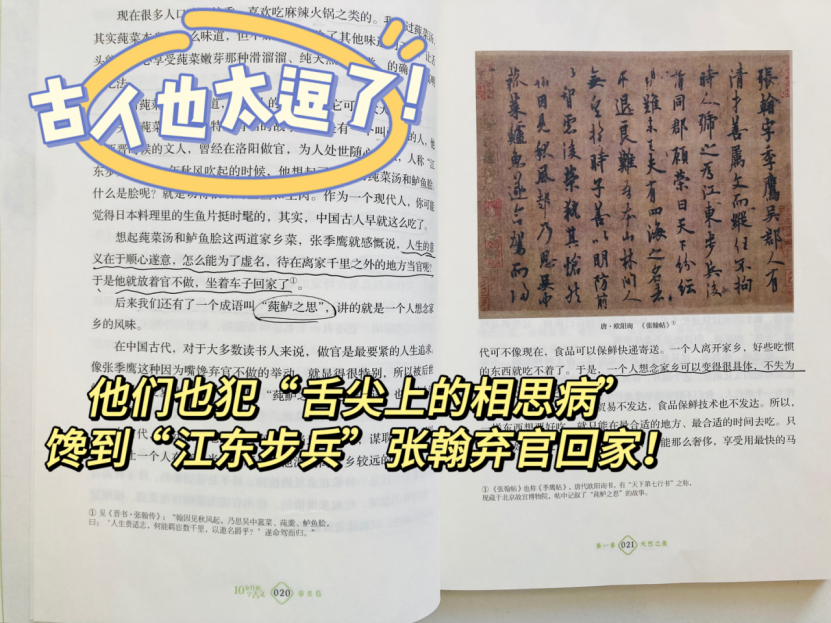 现在很多人口
喜欢吃麻辣火锅之类的。
其实莼菜
古人也太逗了!
享受莼菜嫩芽那种滑溜溜、纯天
候的文人,曾经在洛阳做官,为人处世随
人称“江
秋风吹起的时候,他想起
莼菜汤和鲈鱼脍,
什么是脍呢?就是
作为一个现代人,你可能
觉得日本料理里的生鱼片挺时髦的,其实,中国古人早就这么吃了。
想起莼菜汤和鲈鱼脍这两道家乡菜,张季鹰就感慨说,人生的意
义在于顺心遂意,怎么能为了虚名,待在离家千里之外的地方当官呢?
于是他就放着官不做,坐着车子回家了①。
后来我们还有了一个成语叫“莼鲈之思”,讲的就是一个人想念家
乡的风味。
在中国古代,对于大多数读书人来说,做官是最要紧的人生追求。
像张季鹰这种因为嘴馋弃官不做的举动,就显得很特别,所以被后世
他们也犯“舌尖上的相思病”
馋到“江东步兵”张翰弃官回家!
①见《晋书·张翰传》:“翰因见秋风起,乃思吴中菰菜、莼羹、鲈鱼脍,
曰:‘人生贵适志,何能羁宦数千里,以邀名爵乎?’遂命驾而归。”
020
張翰字季鷹吳郡人有
清才善屬文而縱任不拘
時人號之為江東步兵後
謂同郡顧榮曰天下紛紜
禍難未已夫有四海之名者
求退良難吾本山林間人
無望於時子善以明防前
以智慮後榮執其愴然
翰因見秋風起乃思吳中
菰菜鱸魚遂命駕而歸
唐·欧阳询 《张翰帖》①
代可不像现在,食品可以保鲜快递寄送。一个人离开家乡,好些吃惯
的东西就吃不着了。于是,一个人想念家乡可以变得很具体,不失为
贸易不发达,食品保鲜技术也不发达。所以,
就只能在最合适的地方、最合适的时间去吃。只
能那么奢侈,享受用最快的马
①《张翰帖》也称《季鹰帖》,唐代欧阳询书,有“天下第七行书”之称,
现藏于北京故宫博物院,帖中记叙了“莼鲈之思”的故事。
第一章 021 天然之美